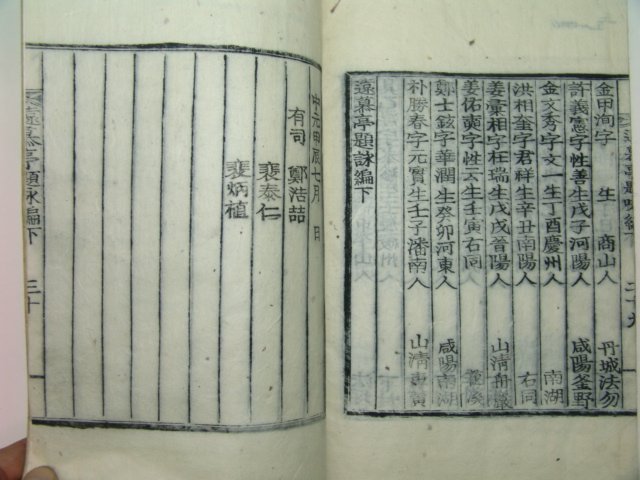 金甲洵字 生 商山人 丹城法勿
許義憲字性善生戊子河陽人 咸陽釜野
金文秀字文一生丁酉慶州人 南湖
洪相奎字君祥生辛丑南陽人 右同
姜彙相字枉瑞生戊戌晉陽人 山清
姜佑奭字性云生壬寅右同人
鄭士鉉字華潤生癸卯河東人 咸陽南湖
朴勝春字元實生壬子潘南人 山清
遠慕亭題詠編下
中元甲辰七月 日
有司 鄭浩喆
裵泰仁
裵炳植
遠慕亭題詠編下 三十